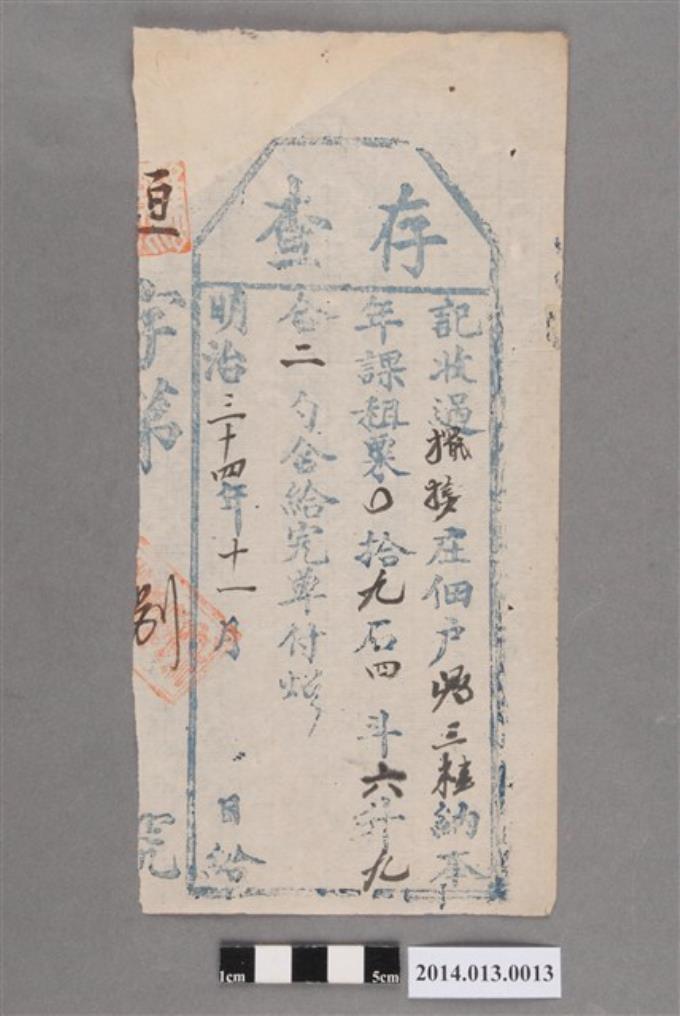 存查
記收過擺接庄佃戶 三桂納本
年課租粟〇拾九石四斗六升九
合二勺合給完單付炤
明治三十四年十一月 日給
字第 完
1cm 5cm
2014.013.0013